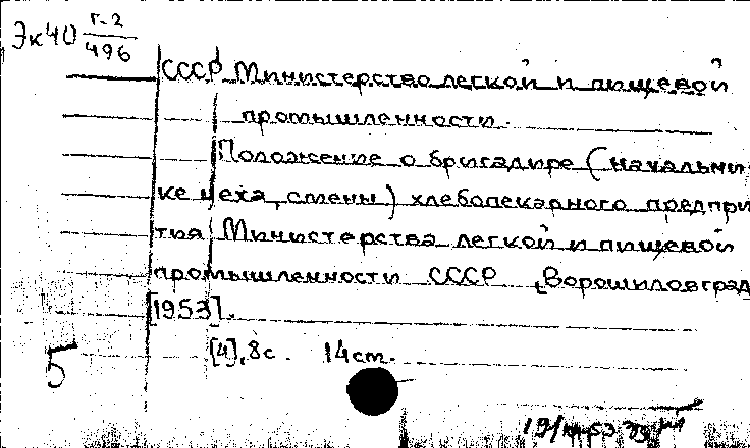 Эк40 Г-2/496
СССР Министерство легкой и пищевой
промышленности.
Положение о бригадире (начальни
ке цеха, смены) хлебопекарного предпри
тия Министерства легкой и пищевой
промышленности СССР [Ворошиловград
[1953].
[4], 8с. 14см.
5